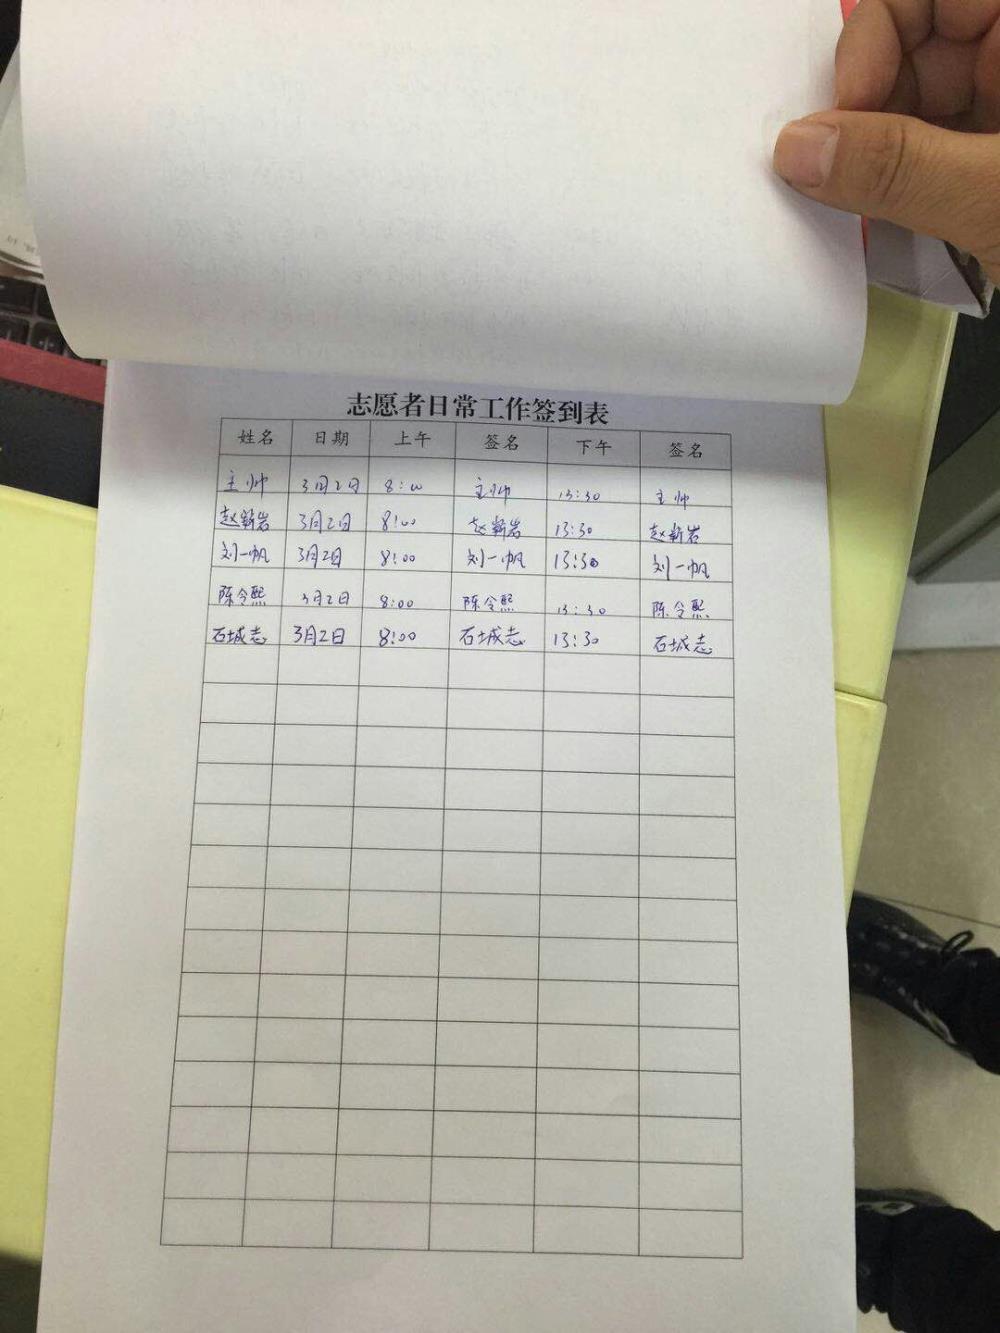 志愿者日常工作签到表
姓名 日期 上午 签名 下午 签名
主帅 3月2日 8:00 主帅 13:30 主帅
赵新岩 3月2日 8:00 赵新岩 13:30 赵新岩
刘一帆 3月2日 8:00 刘一帆 13:30 刘一帆
陈令熙 3月2日 8:00 陈令熙 13:30 陈令熙
石城志 3月2日 8:00 石城志 13:30 石城志